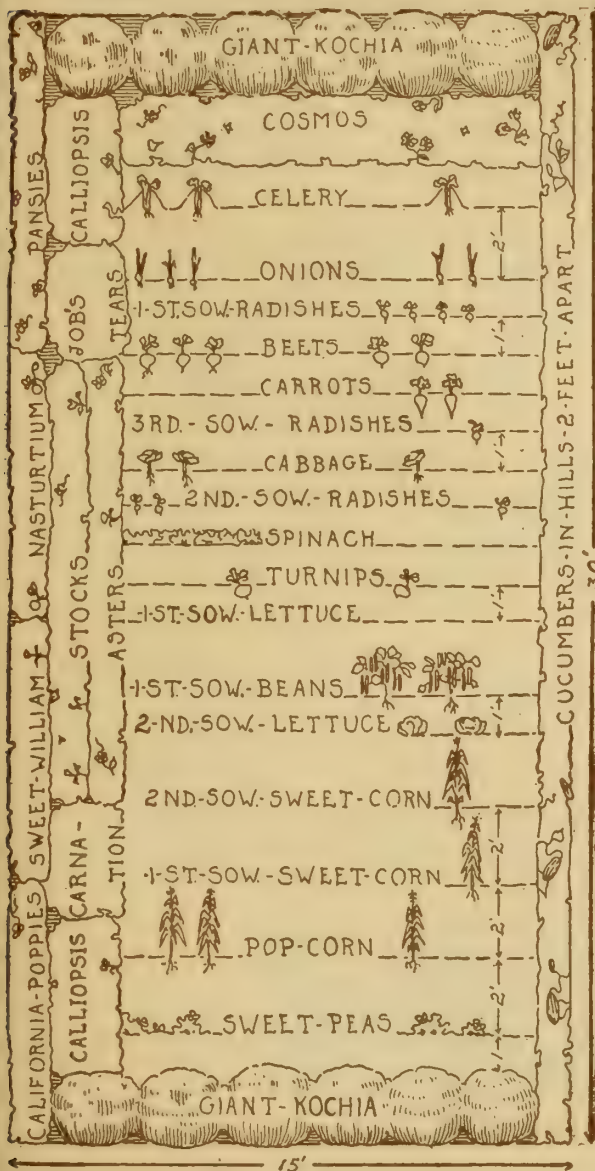 GIANT-KOCHIA
COSMOS
CELERY
2'
ONIONS
1-ST.SOW.-RADISHES
1'
BEETS
CARROTS
3RD.-SOW.-RADISHES
1'
CABBAGE
2ND.-SOW.-RADISHES
SPINACH
TURNIPS
1'
1-ST.-SOW.-LETTUCE
1-ST.-SOW.-BEANS
1'
2-ND.-SOW.-LETTUCE
2ND.-SOW.-SWEET-CORN
2'
1-ST.-SOW.-SWEET-CORN
2'
POP-CORN
2'
SWEET-PEAS
1'
GIANT-KOCHIA
PANSIES
NASTURTIUM
SWEET-WILLIAM
CALIFORNIA-POPPIES
CALLIOPSIS
JOB'S
TEARS
STOCKS
ASTERS
CARNA-
TION
CALLIOPSIS
CUCUMBERS-IN-HILLS-2-FEET-APART
30'
15'